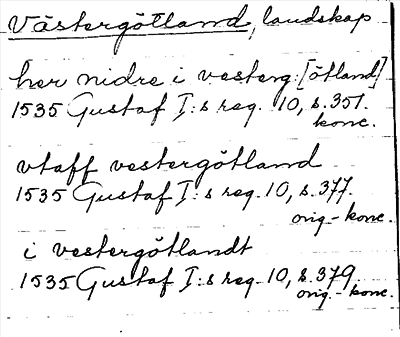 Västergötland, landskap
her nidre i vesterg.[ötland]
1535 Gustaf I:s reg. 10, s. 351.
konc.
vtaff vestergötland
1535 Gustaf I:s reg. 10, s. 377.
orig.-konc.
i vestergötlandt
1535 Gustaf I:s reg. 10, s. 379.
orig.-konc.